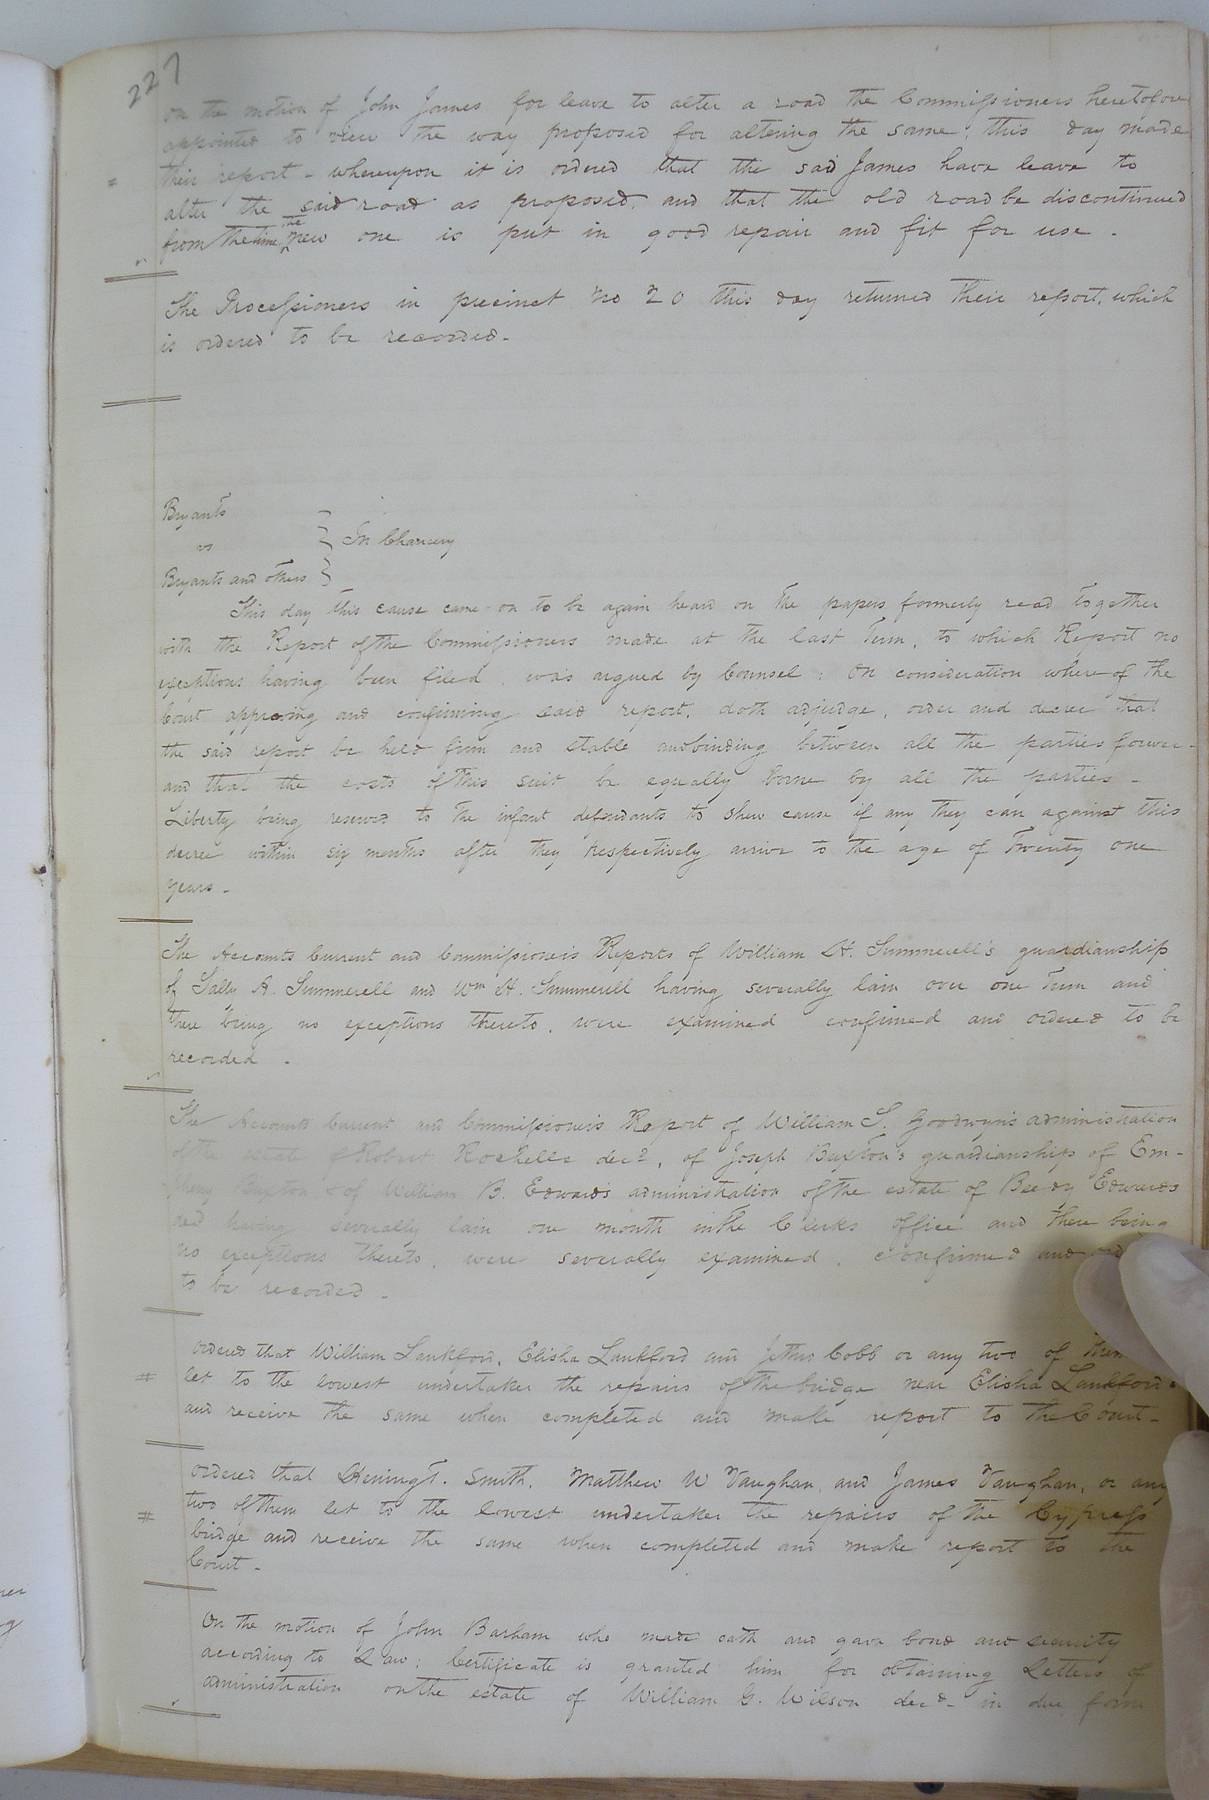 227
On the motion of John James for leave to alter a road the Commissioners heretofore
appointed to view the way proposed for altering the same, this day made
their report - whereupon it is ordered that the said James have leave to
alter the said road as proposed, and that the old road be discontinued
from the time the new one is put in good repair and fit for use.
The Processioners in precinct No 20 this day returned their report, which
is ordered to be recorded.
Bryants
vs
In Chancery
Bryants and others
This day this cause came on to be again heard on the papers formerly read together
with the Report of the Commissioners made at the last Term, to which Report no
exceptions having been filed, was argued by Counsel: On consideration whereof the
Court approving and confirming said report, doth adjudge, order and decree that
the said report be held firm and stable and binding between all the parties forever
and that the costs of this suit be equally borne by all the parties -
Liberty being reserved to the infant defendants to shew cause if any they can against this
decree within six months after they respectively arrive to the age of Twenty one
years -
The Accounts Current and Commissioners Reports of William H. Summerell's guardianship
of Sally A. Summerell and Wm H. Summerell having severally lain over one Term and
there being no exceptions thereto, were examined confirmed and ordered to be
recorded -
The Accounts Current and Commissioners Report of William S. Goodwyn's administration
of the estate of Robert Rochelle decd, of Joseph Buxton's guardianships of Em-
Buxton & of William B. Edwards administration of the estate of Beedy Edwards
decd having severally lain one month in the Clerks office and there being
no exceptions thereto, were severally examined, confirmed and
to be recorded -
Ordered that William Lankford, Elisha Lankford and Jethro Cobb or any two of them
let to the lowest undertaker the repairs of the bridge near Elisha Lankford's
and receive the same when completed and make report to the Court -
Ordered that Smith, Matthew W Vaughan, and James Vaughan, or any
two of them let to the lowest undertaker the repairs of the Cypress
bridge and receive the same when completed and make report to the
Court -
On the motion of John Barham who made oath and gave bond and security
according to Law: Certificate is granted him for obtaining Letters of
administration on the estate of William G. Wilson decd - in due form